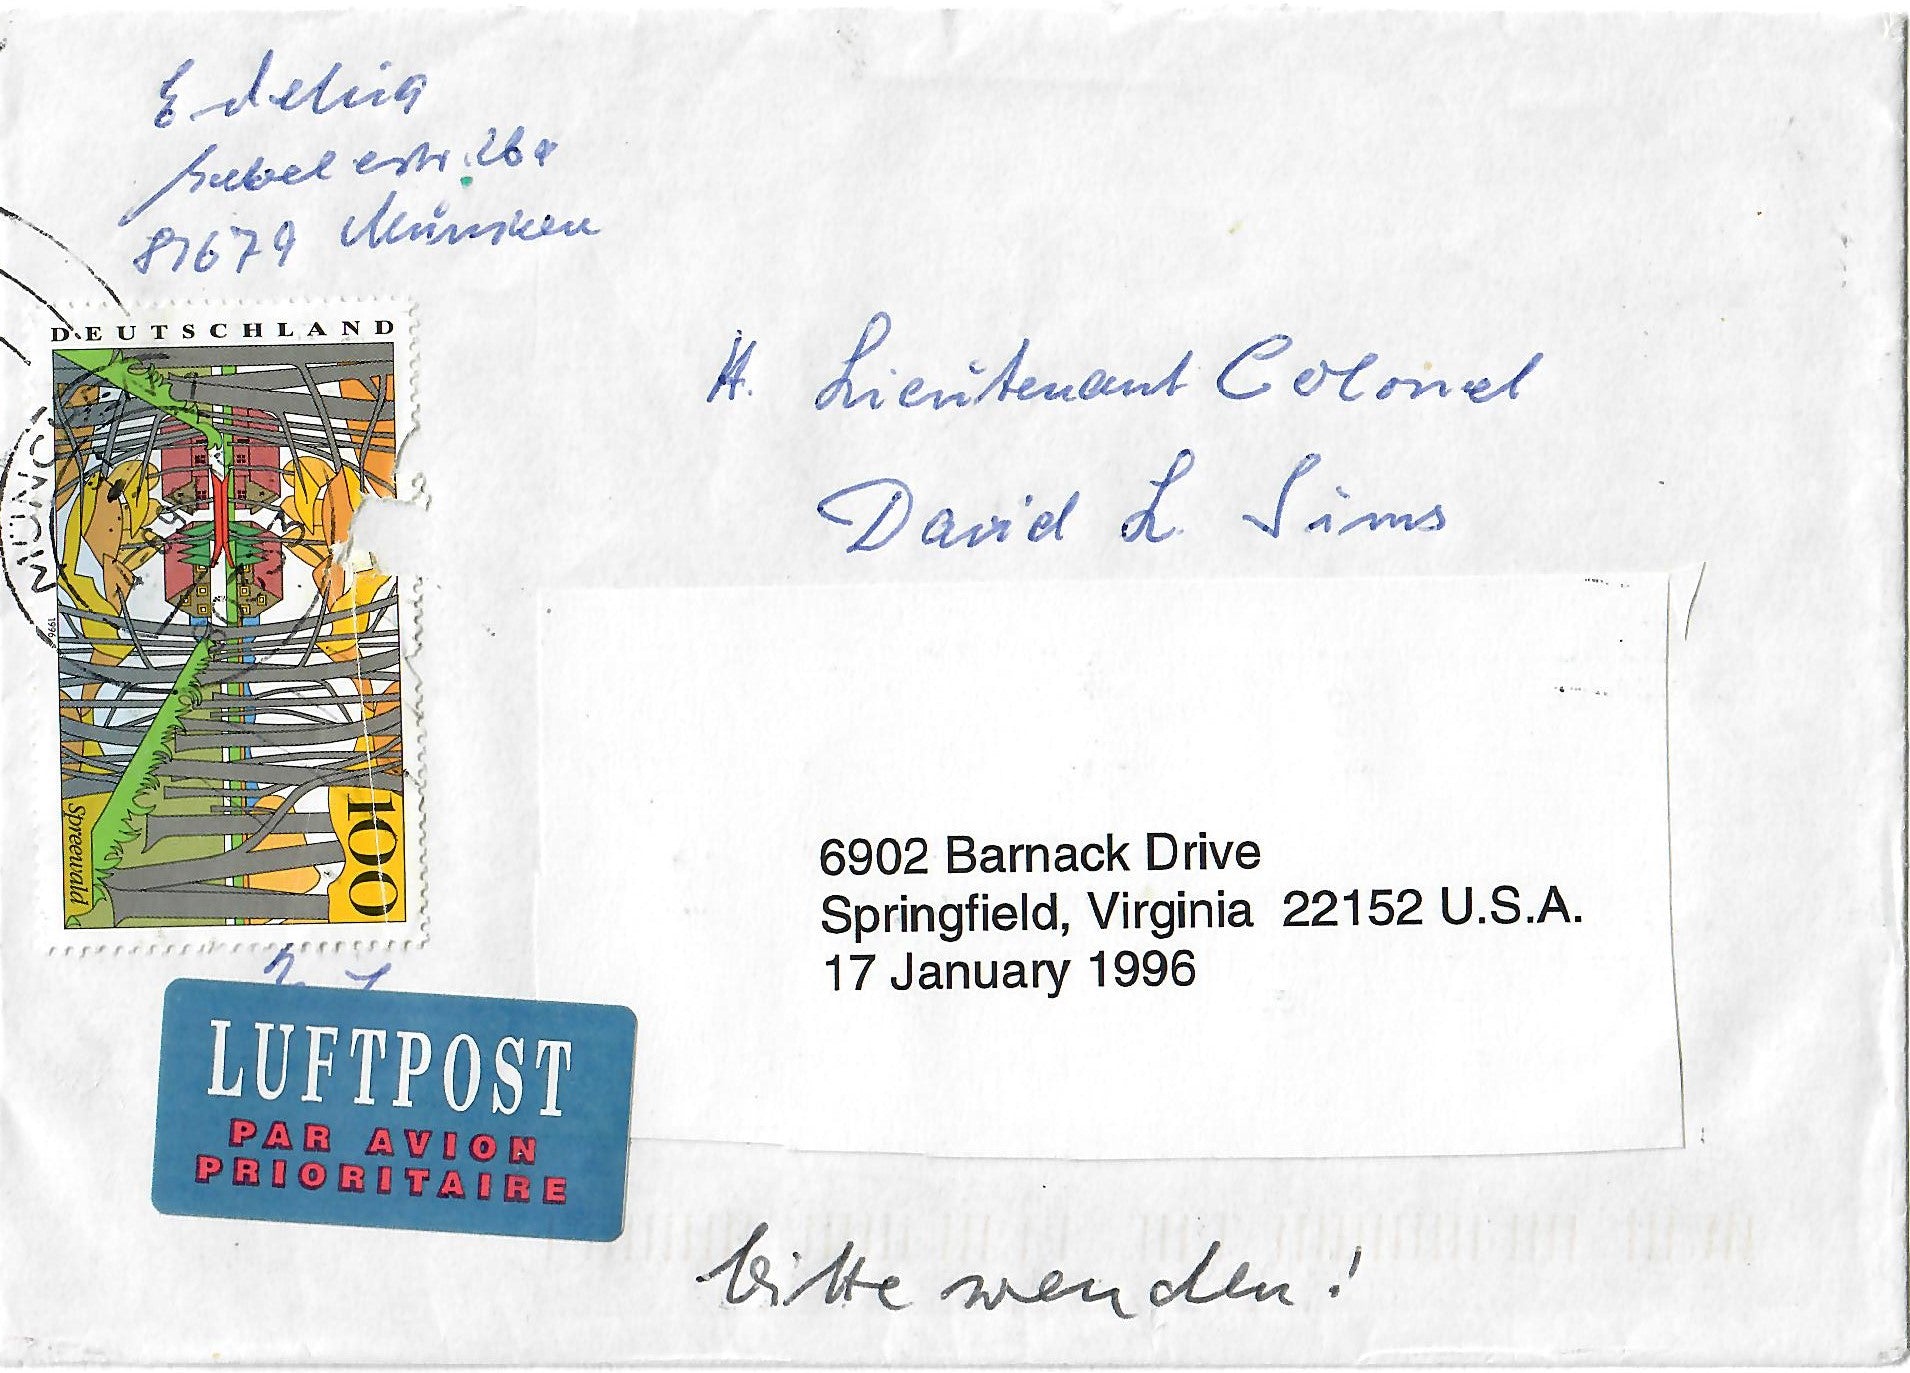 81679 München
DEUTSCHLAND
MÜNC
1996
100
Spreewald
H. Lieutenant Colonel
David L. Sims
6902 Barnack Drive
Springfield, Virginia 22152 U.S.A.
17 January 1996
LUFTPOST
PAR AVION
PRIORITAIRE
bitte wenden!